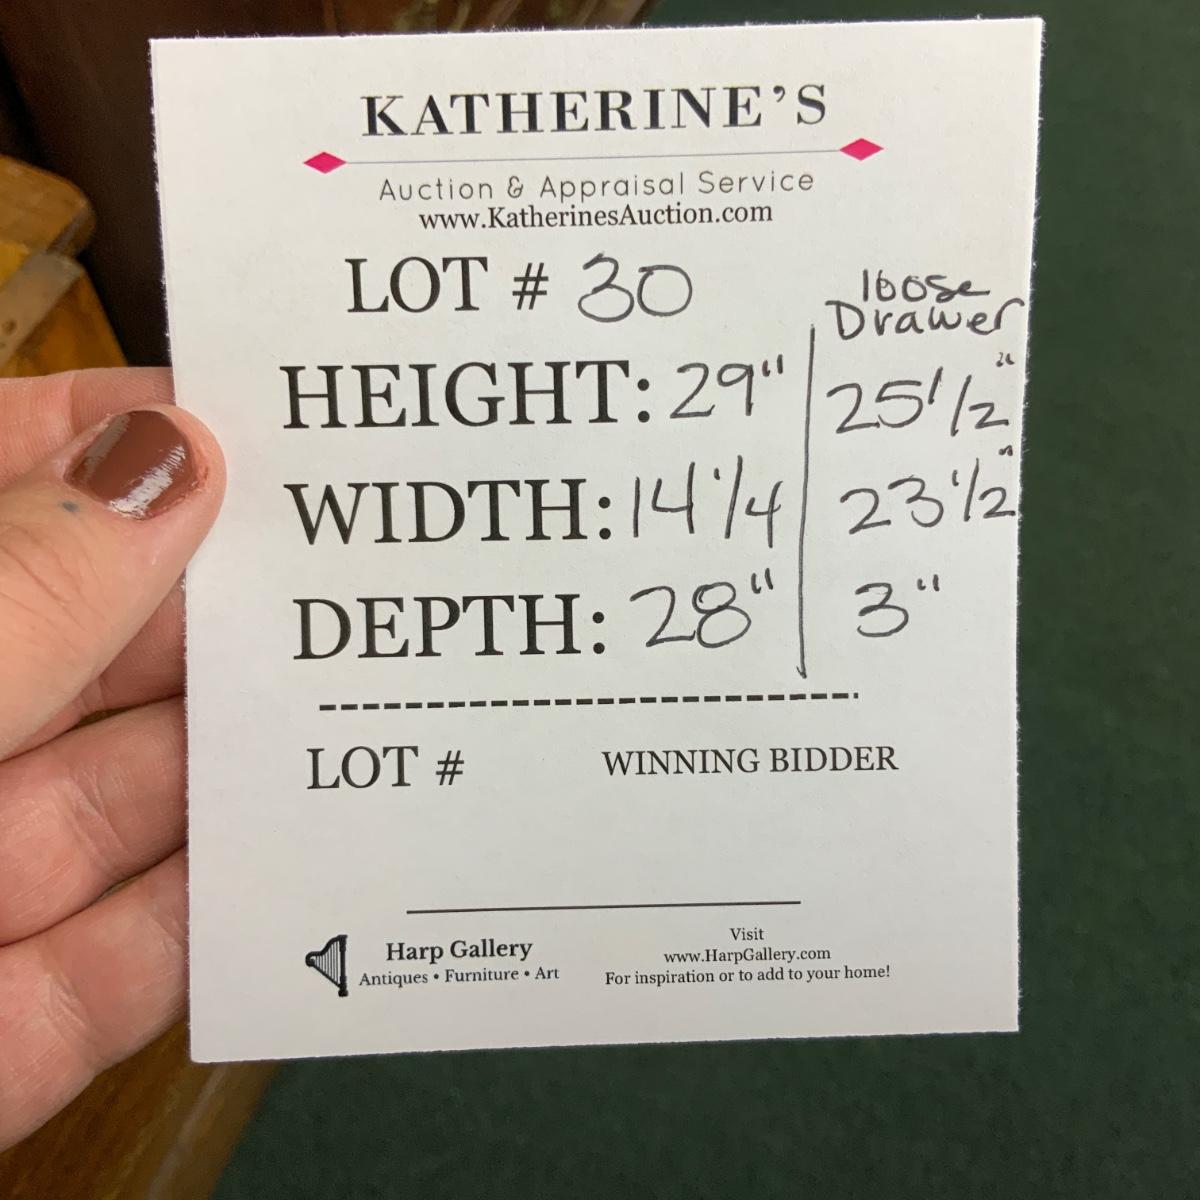 KATHERINE'S
Auction & Appraisal Service
www.KatherinesAuction.com
LOT # 30
loose
Drawer
HEIGHT: 29" 25 1/2"
WIDTH: 14 1/4 23 1/2"
DEPTH: 28" 3"
LOT # WINNING BIDDER
Harp Gallery
Antiques • Furniture • Art
Visit
www.HarpGallery.com
For inspiration or to add to your home!